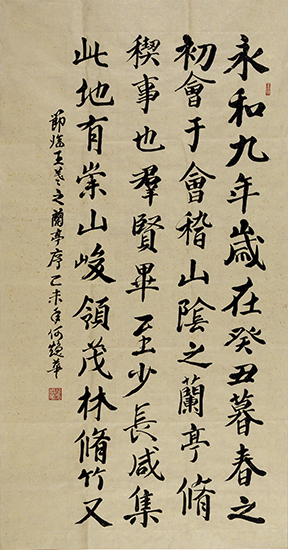 永和九年歲在癸丑暮春之
初會于會稽山陰之蘭亭脩
稧事也羣賢畢至少長咸集
此地有崇山峻領茂林脩竹又
節臨王羲之蘭亭序己未年何楚華